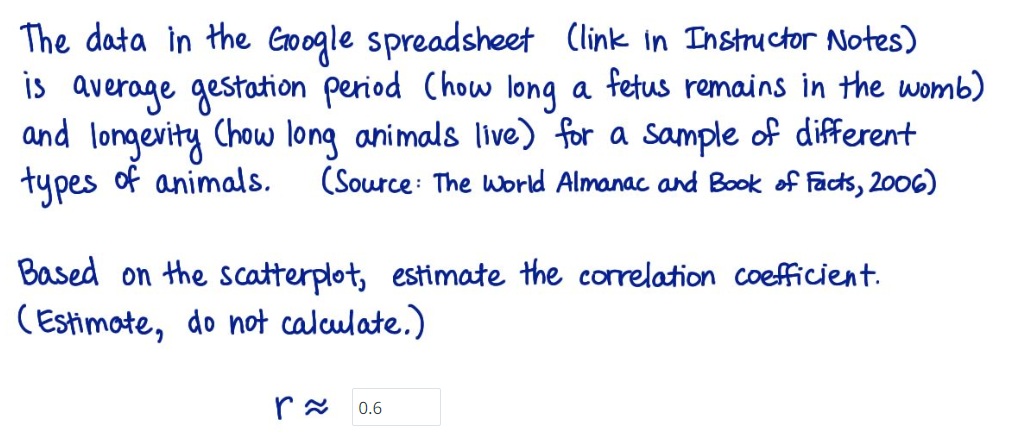 The data in the Google spreadsheet (link in Instructor Notes)
is average gestation period (how long a fetus remains in the womb)
and longevity (how long animals live) for a sample of different
types of animals. (Source: The World Almanac and Book of Facts, 2006)
Based on the scatterplot, estimate the correlation coefficient.
(Estimate, do not calculate.)
r ≈ 0.6